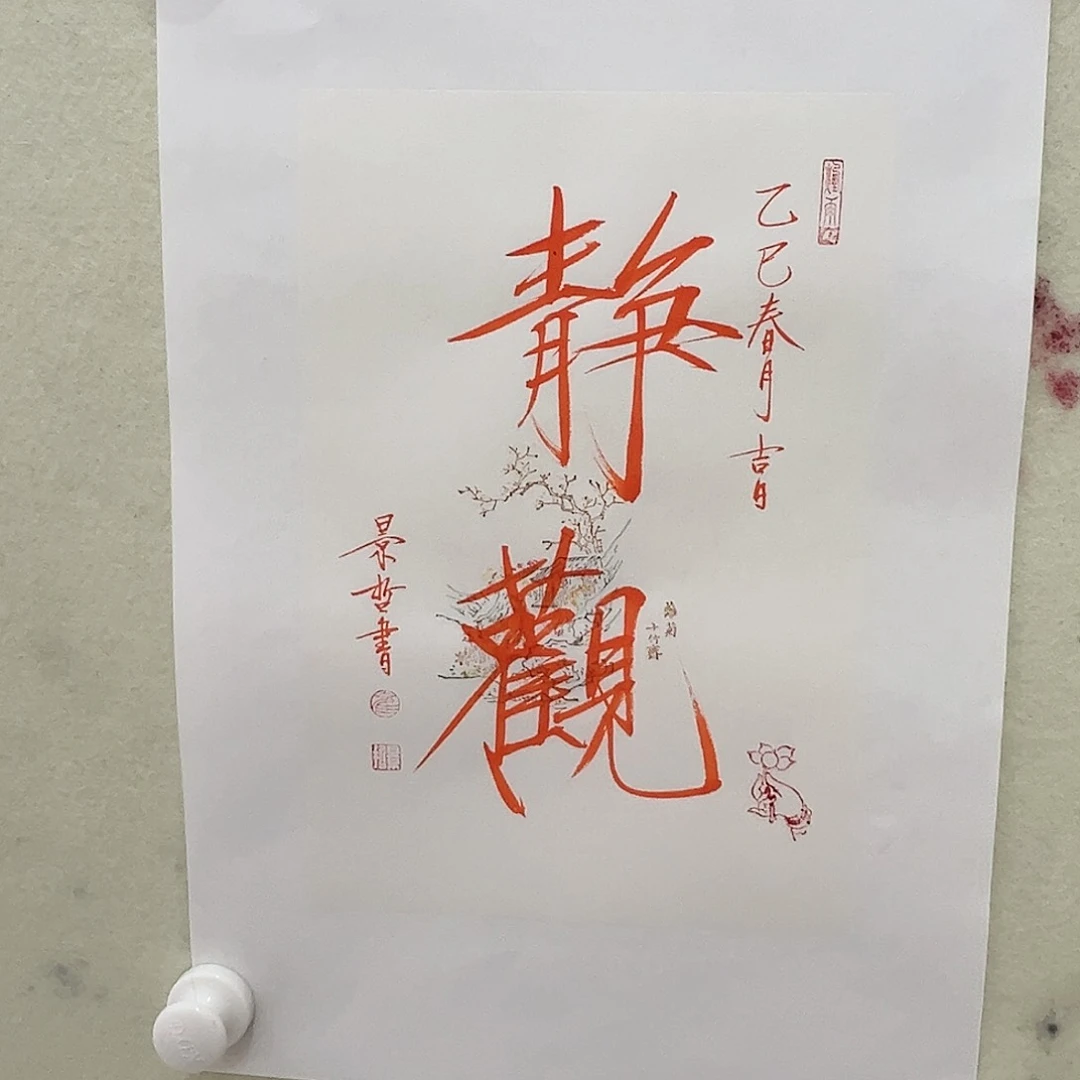 乙巳春月吉日
靜觀
景哲書
十竹齋